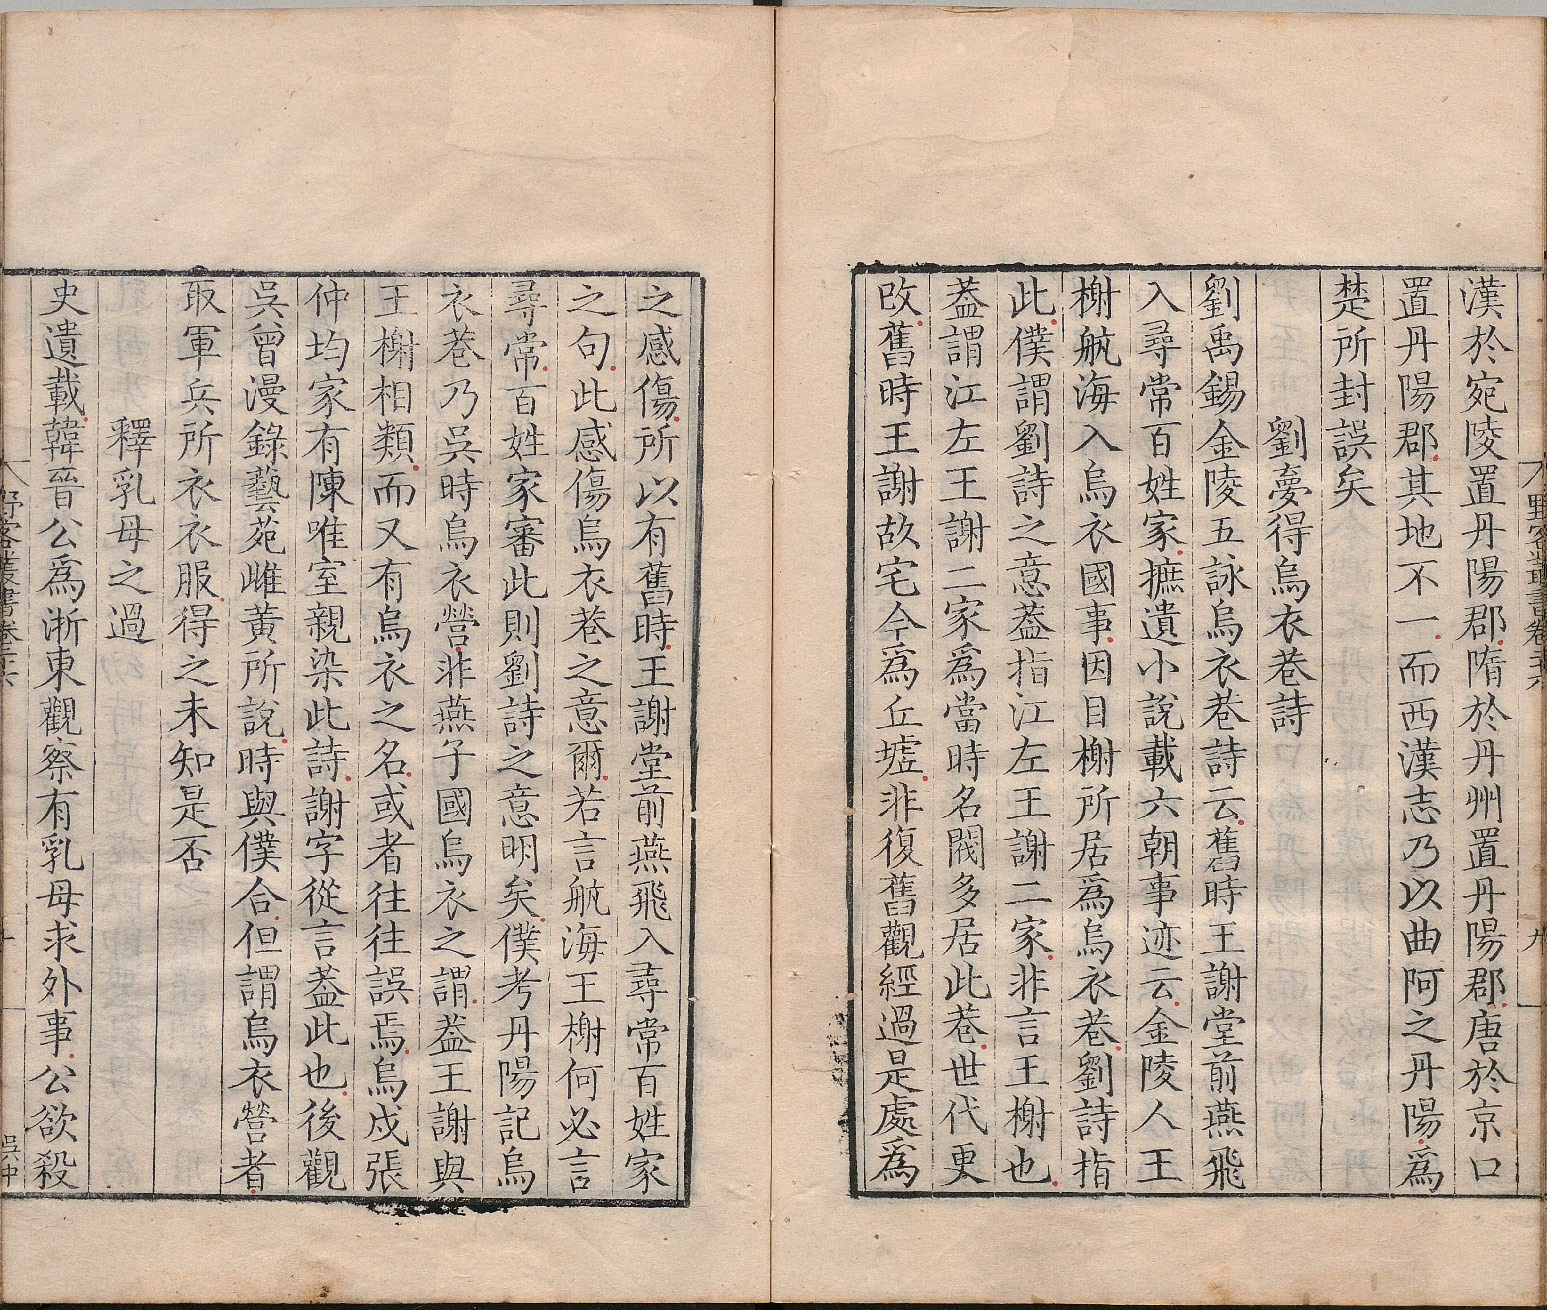 野客叢書卷二十六
九
漢於宛陵置丹陽郡隋於丹州置丹陽郡唐於京口
置丹陽郡其地不一而西漢志乃以曲阿之丹陽為
楚所封誤矣
劉夢得烏衣巷詩
劉禹錫金陵五詠烏衣巷詩云舊時王謝堂前燕飛
入尋常百姓家摭遺小說載六朝事迹云金陵人王
榭航海入烏衣國事因目榭所居為烏衣巷劉詩指
此僕謂劉詩之意蓋指江左王謝二家非言王榭也
蓋謂江左王謝二家為當時名閥多居此巷世代更
改舊時王謝故宅今為丘墟非復舊觀經過是處為
之感傷所以有舊時王謝堂前燕飛入尋常百姓家
之句此感傷烏衣巷之意爾若言航海王榭何必言
尋常百姓家審此則劉詩之意明矣僕考丹陽記烏
衣巷乃吳時烏衣營非燕子國烏衣之謂蓋王謝與
王榭相類而又有烏衣之名或者往往誤焉烏戍張
仲均家有陳唯室親染此詩謝字從言蓋此也後觀
吳曾漫錄藝苑雌黃所說時與僕合但謂烏衣營者
取軍兵所衣衣服得之未知是否
釋乳母之過
史遺載韓晉公為浙東觀察有乳母求外事公欲殺
野客叢書卷二十六
十
吳中